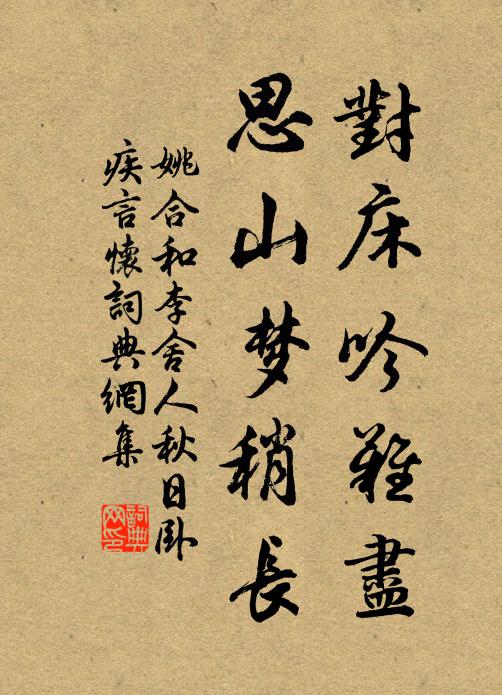 對床吟難盡
思山梦稍長
姚合和李舍人秋日卧
疾言懷詞典網集
詞典
网印